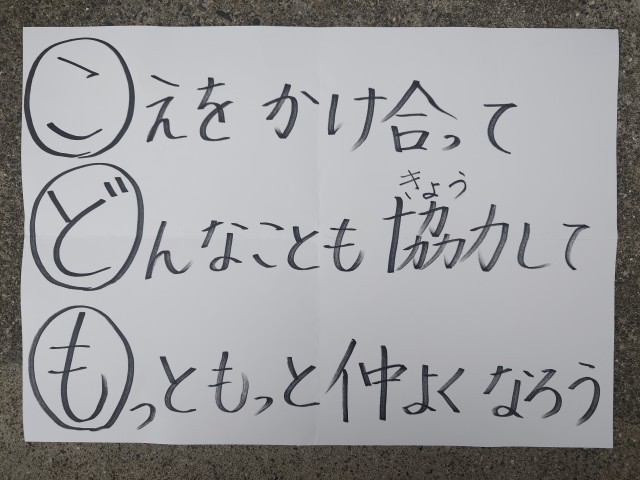 こえをかけ合って
きょう
どんなことも協力して
もっともっと仲よくなろう